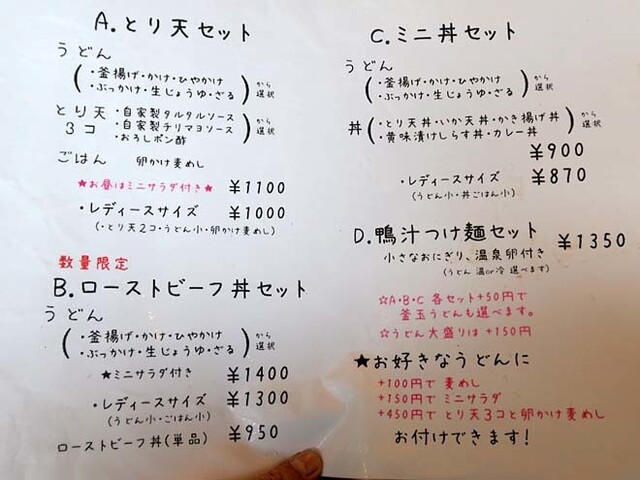 A.とり天セット
うどん
(・釜揚げ・かけ・ひやかけ
・ぶっかけ・生じょうゆ・ざる)から選択
とり天 3コ
・自家製タルタルソース
・自家製チリマヨソース
・おろしポン酢
から選択
ごはん 卵かけ麦めし
★お昼はミニサラダ付き★ ¥1100
・レディースサイズ ¥1000
(・とり天2コ・うどん小・卵かけ麦めし)
数量限定
B.ローストビーフ丼セット
うどん
(・釜揚げ・かけ・ひやかけ
・ぶっかけ・生じょうゆ・ざる)から選択
★ミニサラダ付き ¥1400
・レディースサイズ ¥1300
(うどん小・ごはん小)
ローストビーフ丼(単品) ¥950
C.ミニ丼セット
うどん
(・釜揚げ・かけ・ひやかけ
・ぶっかけ・生じょうゆ・ざる)から選択
丼(・とり天丼・いか天丼・かき揚げ丼
・黄味漬けしらす丼・カレー丼)から選択
¥900
・レディースサイズ ¥870
(うどん小・丼ごはん小)
D.鴨汁つけ麺セット ¥1350
小さなおにぎり、温泉卵付き
(うどん 温or冷 選べます)
☆A・B・C 各セット+50円で
釜玉うどんも選べます。
☆うどん大盛りは +150円
★お好きなうどんに
+100円で 麦めし
+150円で ミニサラダ
+450円で とり天3コと卵かけ麦めし
お付けできます!